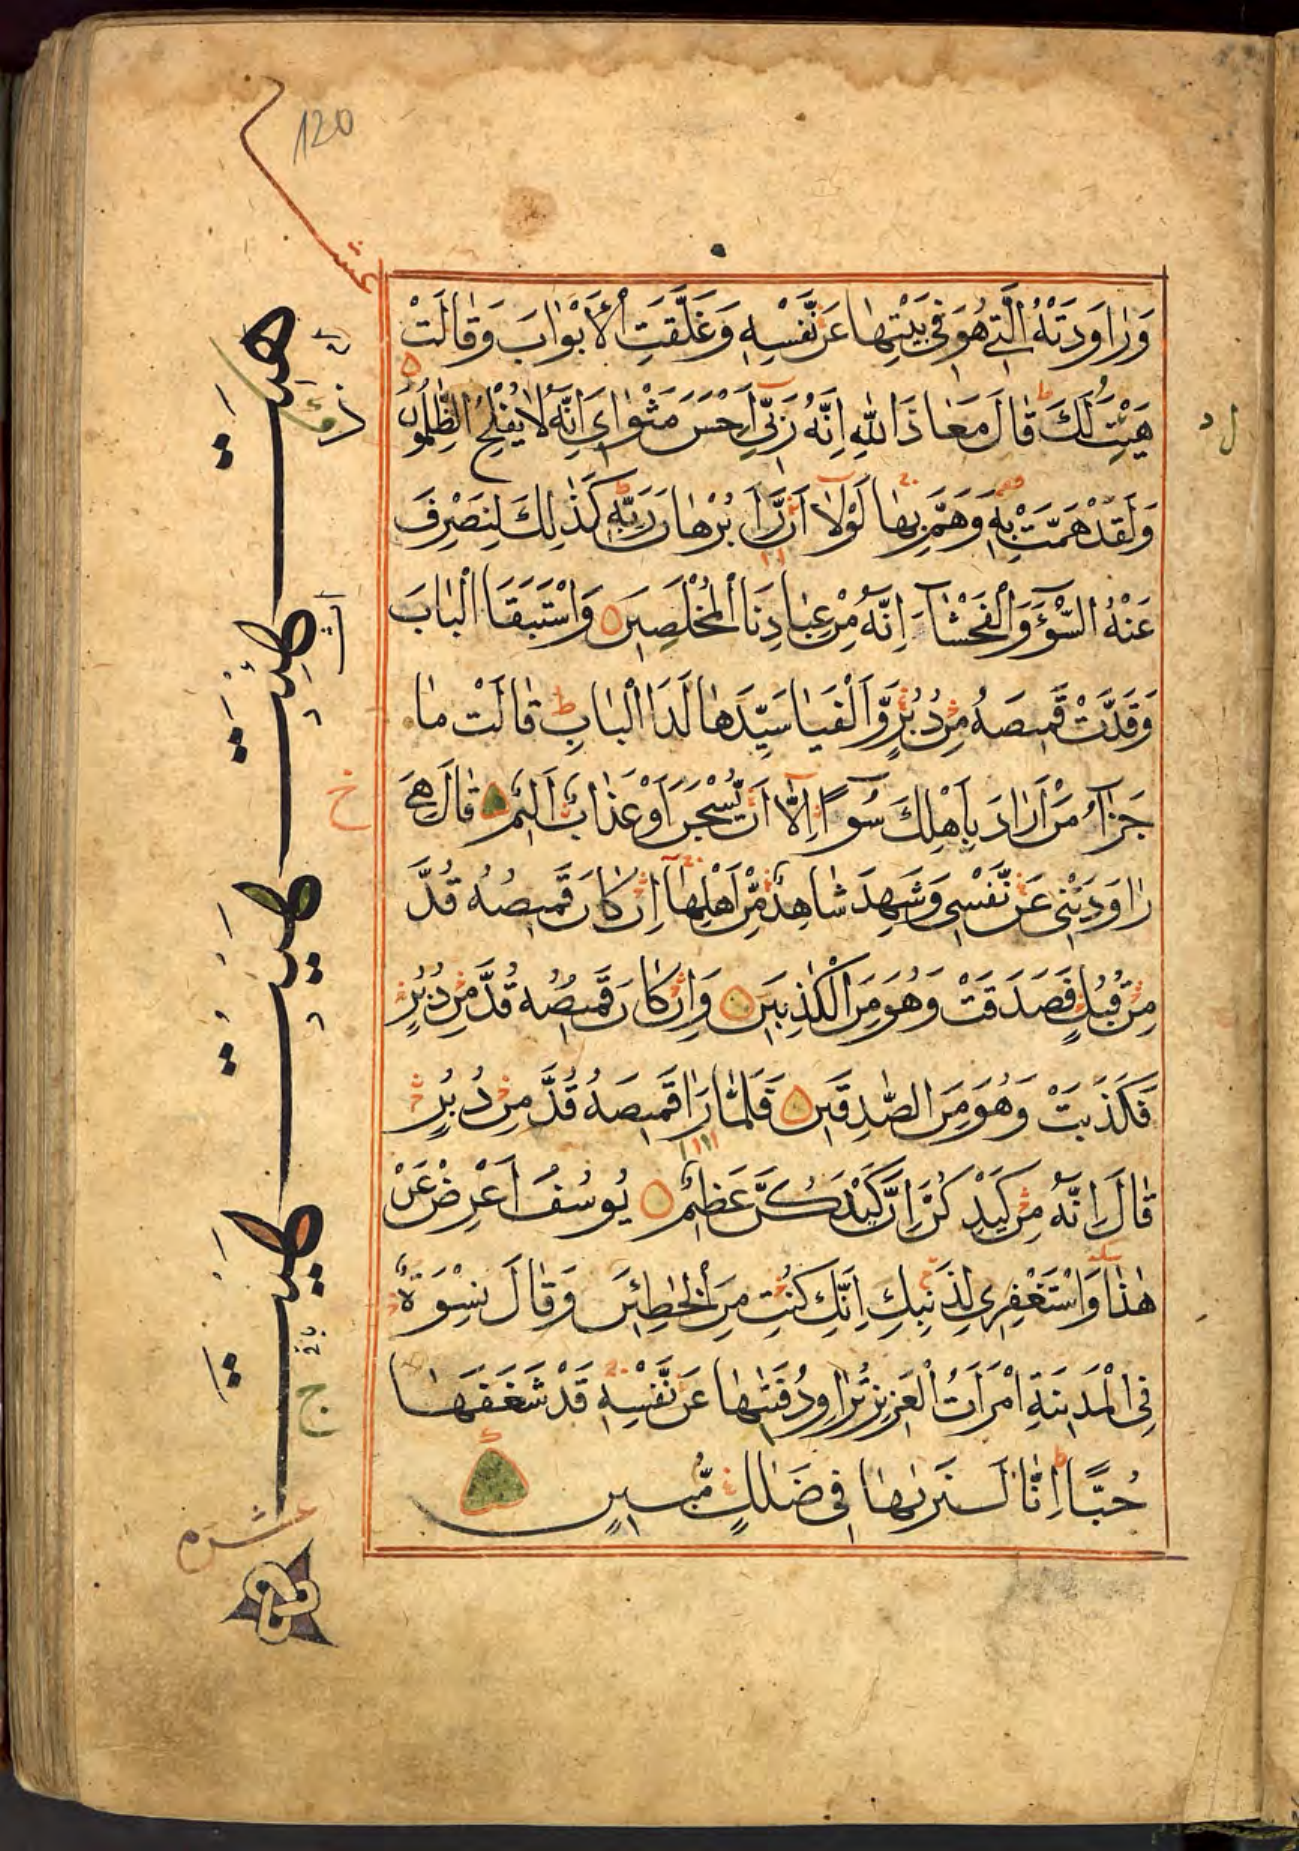 120
عشر
وَرَاوَدَتْهُ الَّتِي هُوَ فِي بَيْتِهَا عَنْ نَفْسِهِ وَغَلَّقَتِ الْأَبْوَابَ وَقَالَتْ
هَيْتَ لَكَ قَالَ مَعَاذَ اللَّهِ اِنَّهُ رَبِّي اَحْسَنَ مَثْوَايَ اِنَّهُ لَا يُفْلِحُ الظّٰلِمُونَ
وَلَقَدْ هَمَّتْ بِهِ وَهَمَّ بِهَا لَوْلَا اَنْ رَاٰ بُرْهَانَ رَبِّهِ كَذٰلِكَ لِنَصْرِفَ
عَنْهُ السُّوءَ وَالْفَحْشَاءَ اِنَّهُ مِنْ عِبَادِنَا الْمُخْلَصِينَ وَاسْتَبَقَا الْبَابَ
وَقَدَّتْ قَمِيصَهُ مِنْ دُبُرٍ وَّاَلْفَيَا سَيِّدَهَا لَدَا الْبَابِ قَالَتْ مَا
جَزَاءُ مَنْ اَرَادَ بِاَهْلِكَ سُوءًا اِلَّا اَنْ يُسْجَنَ اَوْ عَذَابٌ اَلِيمٌ قَالَ هِيَ
رَاوَدَتْنِي عَنْ نَفْسِي وَشَهِدَ شَاهِدٌ مِّنْ اَهْلِهَا اِنْ كَانَ قَمِيصُهُ قُدَّ
مِنْ قُبُلٍ فَصَدَقَتْ وَهُوَ مِنَ الْكٰذِبِينَ وَاِنْ كَانَ قَمِيصُهُ قُدَّ مِنْ دُبُرٍ
فَكَذَبَتْ وَهُوَ مِنَ الصّٰدِقِينَ فَلَمَّا رَاٰ قَمِيصَهُ قُدَّ مِنْ دُبُرٍ
قَالَ اِنَّهُ مِنْ كَيْدِكُنَّ اِنَّ كَيْدَكُنَّ عَظِيمٌ يُوسُفُ اَعْرِضْ عَنْ
هٰذَا وَاسْتَغْفِرِي لِذَنْبِكِ اِنَّكِ كُنْتِ مِنَ الْخَاطِئِينَ وَقَالَ نِسْوَةٌ
فِي الْمَدِينَةِ امْرَاَتُ الْعَزِيزِ تُرَاوِدُ فَتٰيهَا عَنْ نَفْسِهِ قَدْ شَغَفَهَا
حُبًّا اِنَّا لَنَرٰيهَا فِي ضَلٰلٍ مُّبِينٍ